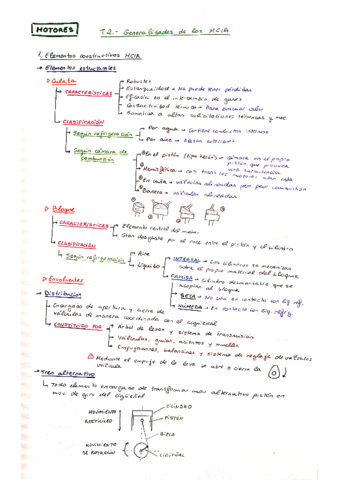 MOTORES
T.2.- Generalidades de los MCIA
1. Elementos constructivos MCIA
→ Elementos estructurales
Culata
CARACTERÍSTICAS
Robustez
Estanqueidad → No puede tener pérdidas
Eficacia en el intercambio de gases
Conductividad térmica → Para evacuar calor
Sometida a altas solicitaciones térmicas y mec.
CLASIFICACIÓN
Según refrigeración
Por agua → Contiene conductos internos
Por aire → Aletas exteriores
Según cámara de combustión
En el pistón (tipo Heron) → Cámara en el propio pistón que provoca una turbulencia
Hemisférica →
En cuña → válvulas alineadas pero peor combustión
Bañera → válvulas alineadas
Bloque
CARACTERÍSTICAS
Elemento central del motor
Gran desgaste por el roce entre el pistón y el cilindro
CLASIFICACIÓN
Según refrigeración
Aire
Líquido
INTEGRAL → Los cilindros se mecanizan sobre el propio material del bloque
CAMISA → Cilindro desmontable que se acopla al bloque
SECA → No está en contacto con líq. refr.
HÚMEDA → En contacto con líq. refrig.
Envolventes
→ Distribución
Encargado de apertura y cierre de válvulas de manera coordinada con el cigüeñal
CONSTITUIDO POR
Árbol de levas y sistema de transmisión
Válvulas, guías, asientos y muelles
Empujadores, balancines y sistema de reglaje de válvulas
Mediante el empuje de la leva se abre o cierra la válvula
→ Tren alternativo
Todo elemento encargado de transformar mov. alternativo pistón en mov. de giro del cigüeñal
MOVIMIENTO RECTILÍNEO
CILINDRO
PISTÓN
BIELA
MOVIMIENTO DE ROTACIÓN
CIGÜEÑAL